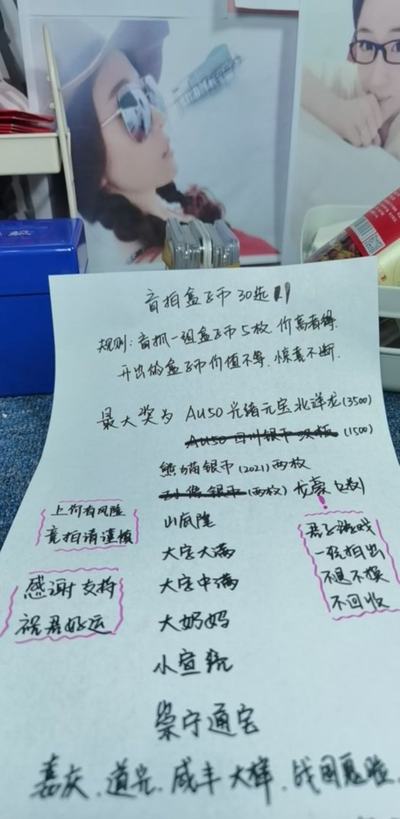 盲拍盒子币 30选1
规则:盲抓一组盒子币5枚 价高者得.
开出的盒子币价值不等、惊喜不断.
最大奖为 AU50 光绪元宝北洋龙(3500)
(1500)
熊猫银币(2021)两枚
(两枚)
上价有风险
竞拍请谨慎
山底隆
君子游戏
一经拍出
不退不换
不回收
大字大满
感谢支持
祝君好运
大字中满
大奶妈
小宣统
崇宁通宝
嘉庆、道光、咸丰大样、战国